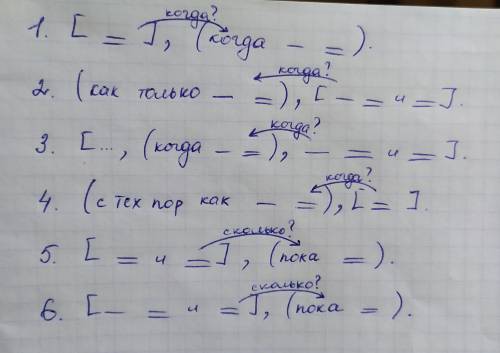 когда?
1. [ = ], (когда – = ).
когда?
2. (как только – = ), [ – = и = ].
когда?
3. [ ..., (когда – = ), – = и = ].
когда?
4. (с тех пор как – = ), [ = ].
сколько?
5. [ = и = ], (пока = ).
сколько?
6. [ – = и = ], (пока = ).